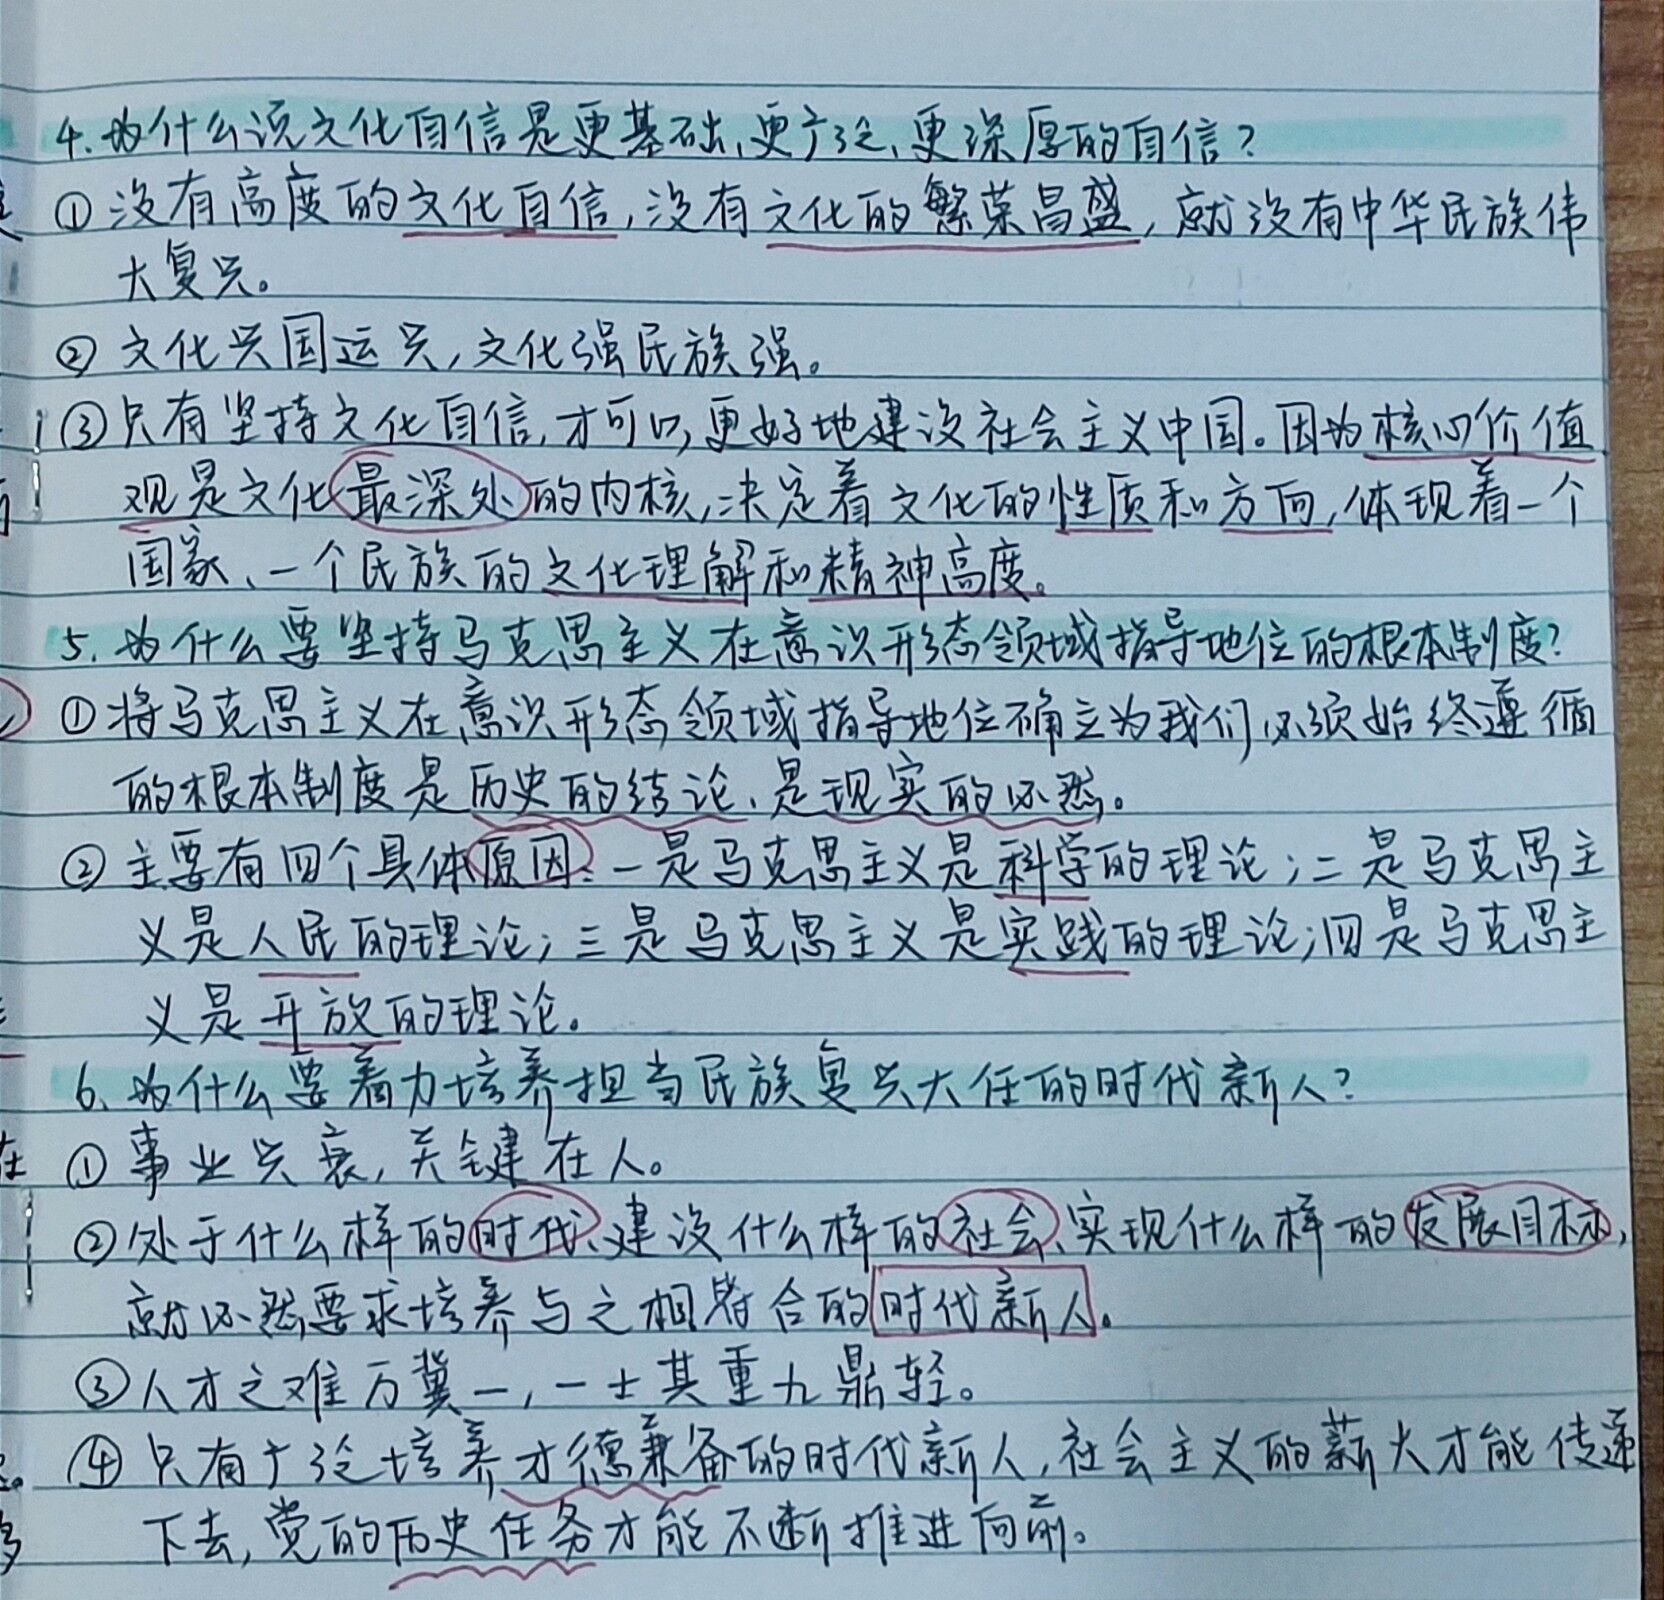 4.为什么说文化自信是更基础、更广泛、更深厚的自信?
①没有高度的文化自信,没有文化的繁荣昌盛,就没有中华民族伟
大复兴。
②文化兴国运兴,文化强民族强。
③只有坚持文化自信,才可以更好地建设社会主义中国。因为核心价值
观是文化最深处的内核,决定着文化的性质和方向,体现着一个
国家、一个民族的文化理解和精神高度。
5.为什么要坚持马克思主义在意识形态领域指导地位的根本制度?
①将马克思主义在意识形态领域指导地位确立为我们必须始终遵循
的根本制度是历史的结论、是现实的必然。
②主要有四个具体原因:一是马克思主义是科学的理论;二是马克思主
义是人民的理论;三是马克思主义是实践的理论;四是马克思主
义是开放的理论。
6.为什么要着力培养担当民族复兴大任的时代新人?
①事业兴衰,关键在人。
②处于什么样的时代、建设什么样的社会、实现什么样的发展目标,
就必然要求培养与之相符合的时代新人。
③人才之难万冀一,一士其重九鼎轻。
④只有广泛培养才德兼备的时代新人,社会主义的薪火才能传递
下去,党的历史任务才能不断推进向前。